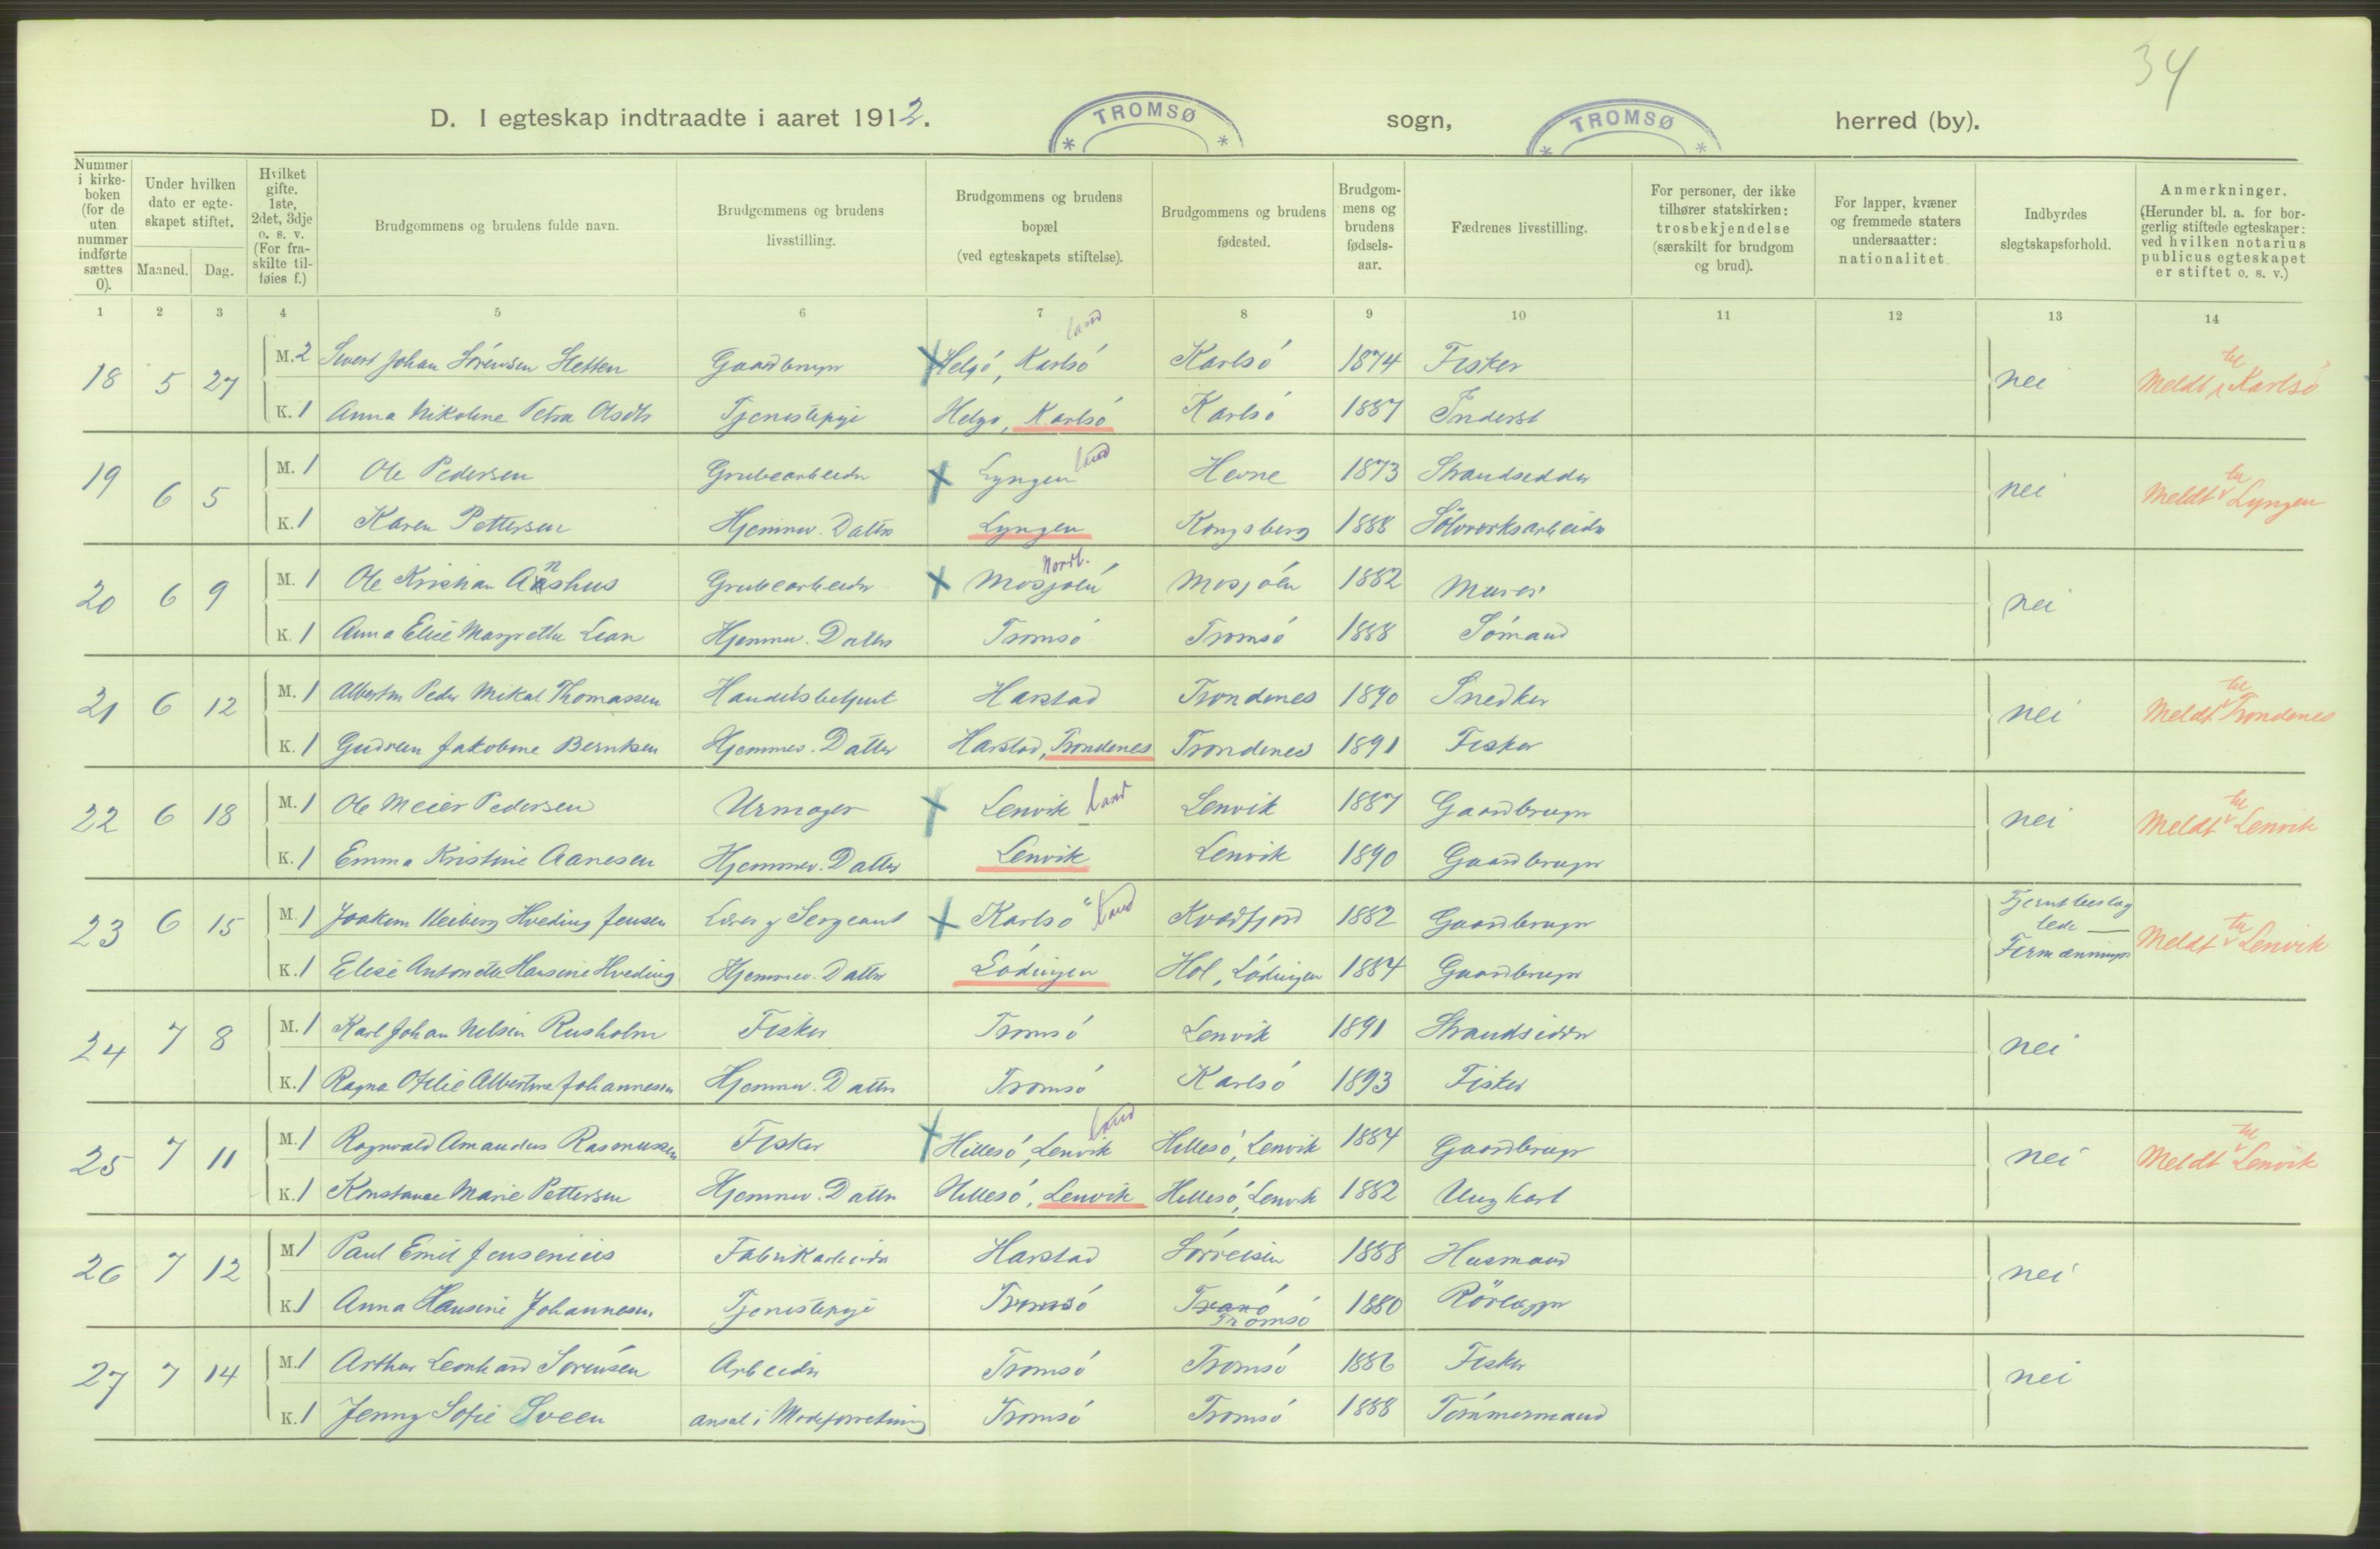 34
D. I egteskap indtraadte i aaret 1912. TROMSØ sogn, TROMSØ herred (by).
Nummer i kirke-boken (for de uten nummer indførte sættes 0). Under hvilken dato er egte-skapet stiftet. Maaned. Dag. Hvilket gifte. 1ste, 2det, 3dje o. s. v. (For fra-skilte til-føies f.) Brudgommens og brudens fulde navn. Brudgommens og brudens livsstilling. Brudgommens og brudens bopæl (ved egteskapets stiftelse). Brudgommens og brudens fødested. Brudgom-mens og brudens fødsels-aar. Fædrenes livsstilling. For personer, der ikke tilhører statskirken: trosbekjendelse (særskilt for brudgom og brud). For lapper, kvæner og fremmede staters undersaatter: nationalitet Indbyrdes slegtskapsforhold. Anmerkninger. (Herunder bl. a. for bor-gerlig stiftede egteskaper: ved hvilken notarius publicus egteskapet er stiftet o. s. v.)
1 2 3 4 5 6 7 8 9 10 11 12 13 14
18 5 27 M. 2 Sivert Johan Sörensen Sletten Gaardbruger Helgö, Karlsö land Karlsö 1874 Fisker nei Meldt til Karlsö
K. 1 Anna Nikoline Petra Olsdtr Tjenestepige Helgö, Karlsö Karlsö 1887 Inderst
19 6 5 M. 1 Ole Pedersen Grubearbeider Lyngen land Hevne 1873 Strandsedder nei Meldt til Lyngen
K. 1 Karen Pettersen Hjemmev. Datter Lyngen Kongsberg 1888 Sölvverksarbeider
20 6 9 M. 1 Ole Kristian Aashus n Grubearbeider Mosjöen Nordl. Mosjöen 1882 Murer nei
K. 1 Anna Elise Margrethe Lian Hjemmev. Datter Tromsö Tromsö 1888 Sömand
21 6 12 M. 1 Albertin Peder Mikal Thomassen Handelsbetjent Harstad Trondenes 1890 Snedker nei Meldt til Trondenes
K. 1 Gudrun Jakobine Berntsen Hjemmev. Datter Harstad, Trondenes Trondenes 1891 Fisker
22 6 18 M. 1 Ole Meier Pedersen Urmager Lenvik land Lenvik 1887 Gaardbruger nei Meldt til Lenvik
K. 1 Emma Kristine Aanesen Hjemmev. Datter Lenvik Lenvik 1890 Gaardbruger
23 6 15 M. 1 Joakim Heiberg Hveding Jensen Lærer og Sergeant Karlsö land Kvædfjord 1882 Gaardbruger Fjernt beslegtede — Firmænninger Meldt til Lenvik
K. 1 Elise Antonette Hansine Hveding Hjemmev. Datter Lödingen Hol, Lödingen 1884 Gaardbruger
24 7 8 M. 1 Karl Johan Nilsen Rusholm Fisker Tromsö Lenvik 1891 Strandsidder nei
K. 1 Ragna Otilie Albertine Johannesen Hjemmev. Datter Tromsö Karlsö 1893 Fisker
25 7 11 M. 1 Ragnvald Amandus Rasmussen Fisker Hillesö, Lenvik land Hillesö, Lenvik 1884 Gaardbruger nei Meldt til Lenvik
K. 1 Konstanse Marie Pettersen Hjemmev. Datter Hillesö, Lenvik Hillesö, Lenvik 1882 Ungkarl
26 7 12 M 1 Paul Emil Jensenius Fabrikarbeider Harstad Sörreisen 1888 Husmand nei
K. 1 Anna Hansine Johannesen Tjenestepige Tromsö Tranö Tromsö 1880 Rörlægger
27 7 14 M. 1 Arthur Leonhard Sörensen Arbeider Tromsö Tromsö 1886 Fisker nei
K. 1 Jenny Sofie Sveen ansat i Modeforretning Tromsö Tromsö 1888 Tömmermand